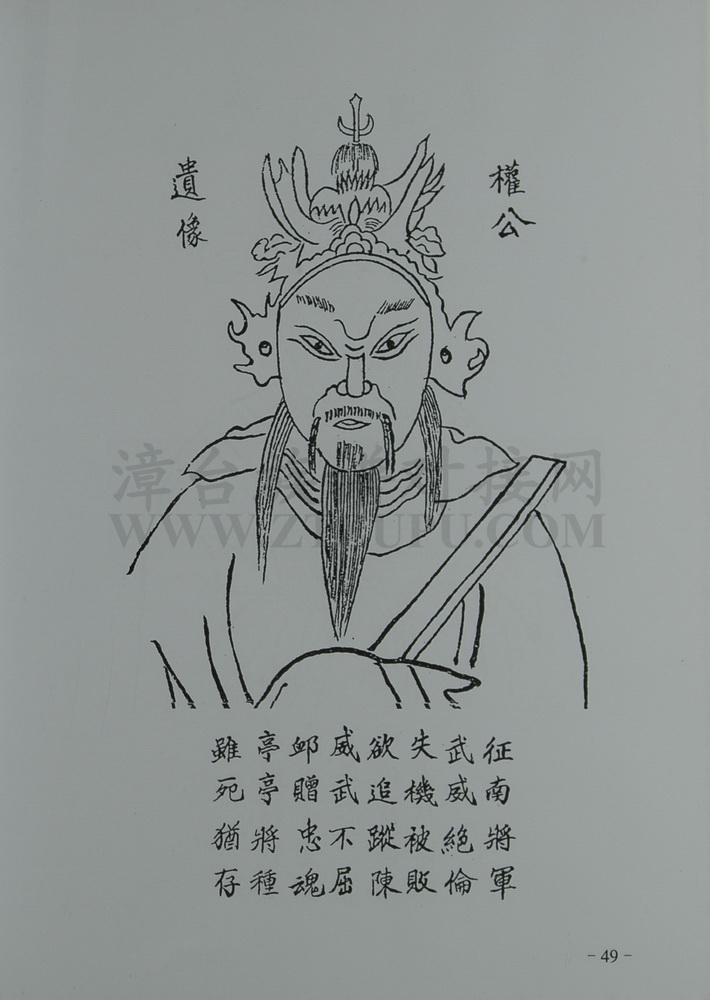 權公
遺像
征南將軍
武威絕倫
失機被敗
欲追蹤陳
威武不屈
卹贈忠魂
亭亭將種
雖死猶存
WWW.ZTZUPU.COM
- 49 -